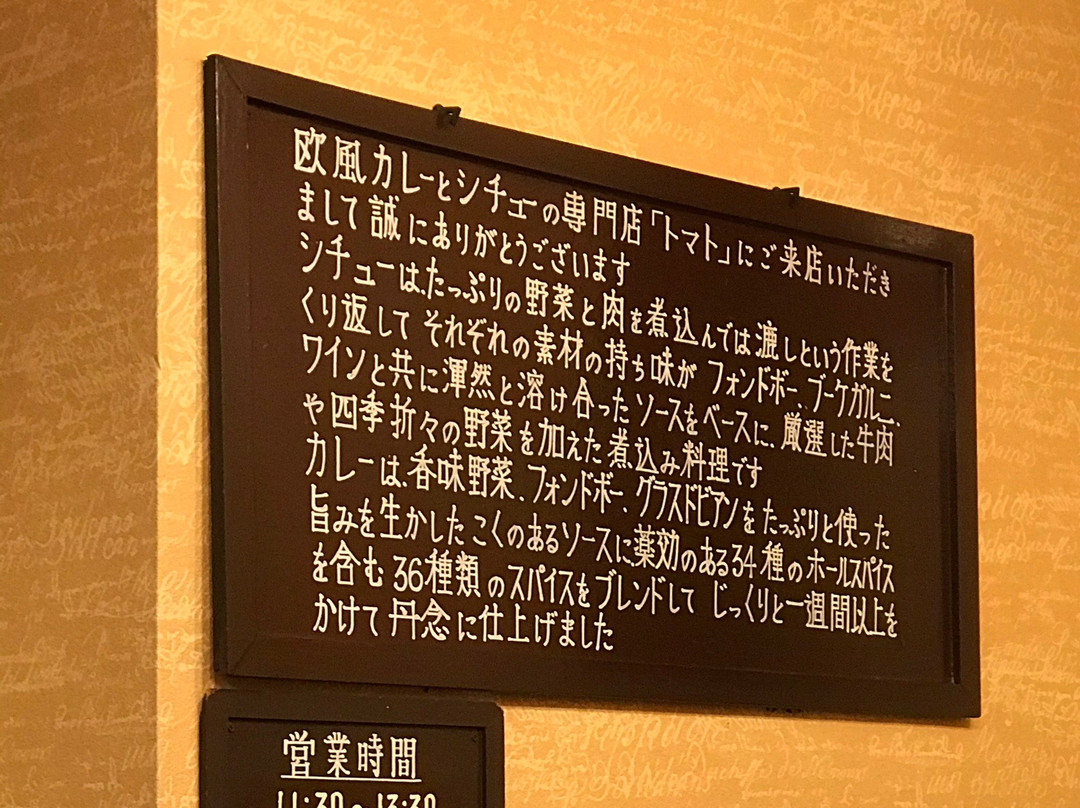 欧風カレーとシチューの専門店「トマト」にご来店いただき
まして誠にありがとうございます
シチューは、たっぷりの野菜と肉を煮込んでは漉しという作業を
くり返して それぞれの素材の持ち味が フォンドボー、ブーケガルニ、
ワインと共に渾然と溶け合ったソースをベースに、厳選した牛肉
や四季折々の野菜を加えた煮込み料理です
カレーは、香味野菜、フォンドボー、グラスドビアンをたっぷりと使った
旨みを生かしたこくのあるソースに薬効のある34種のホールスパイス
を含む36種類のスパイスをブレンドして じっくりと一週間以上を
かけて丹念に仕上げました
営業時間
11:30~13:30